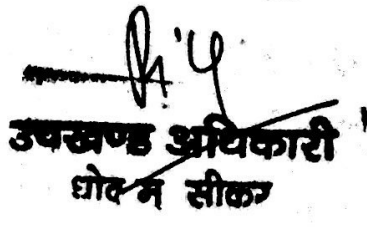 उपखण्ड अधिकारी
धोद म सीकर